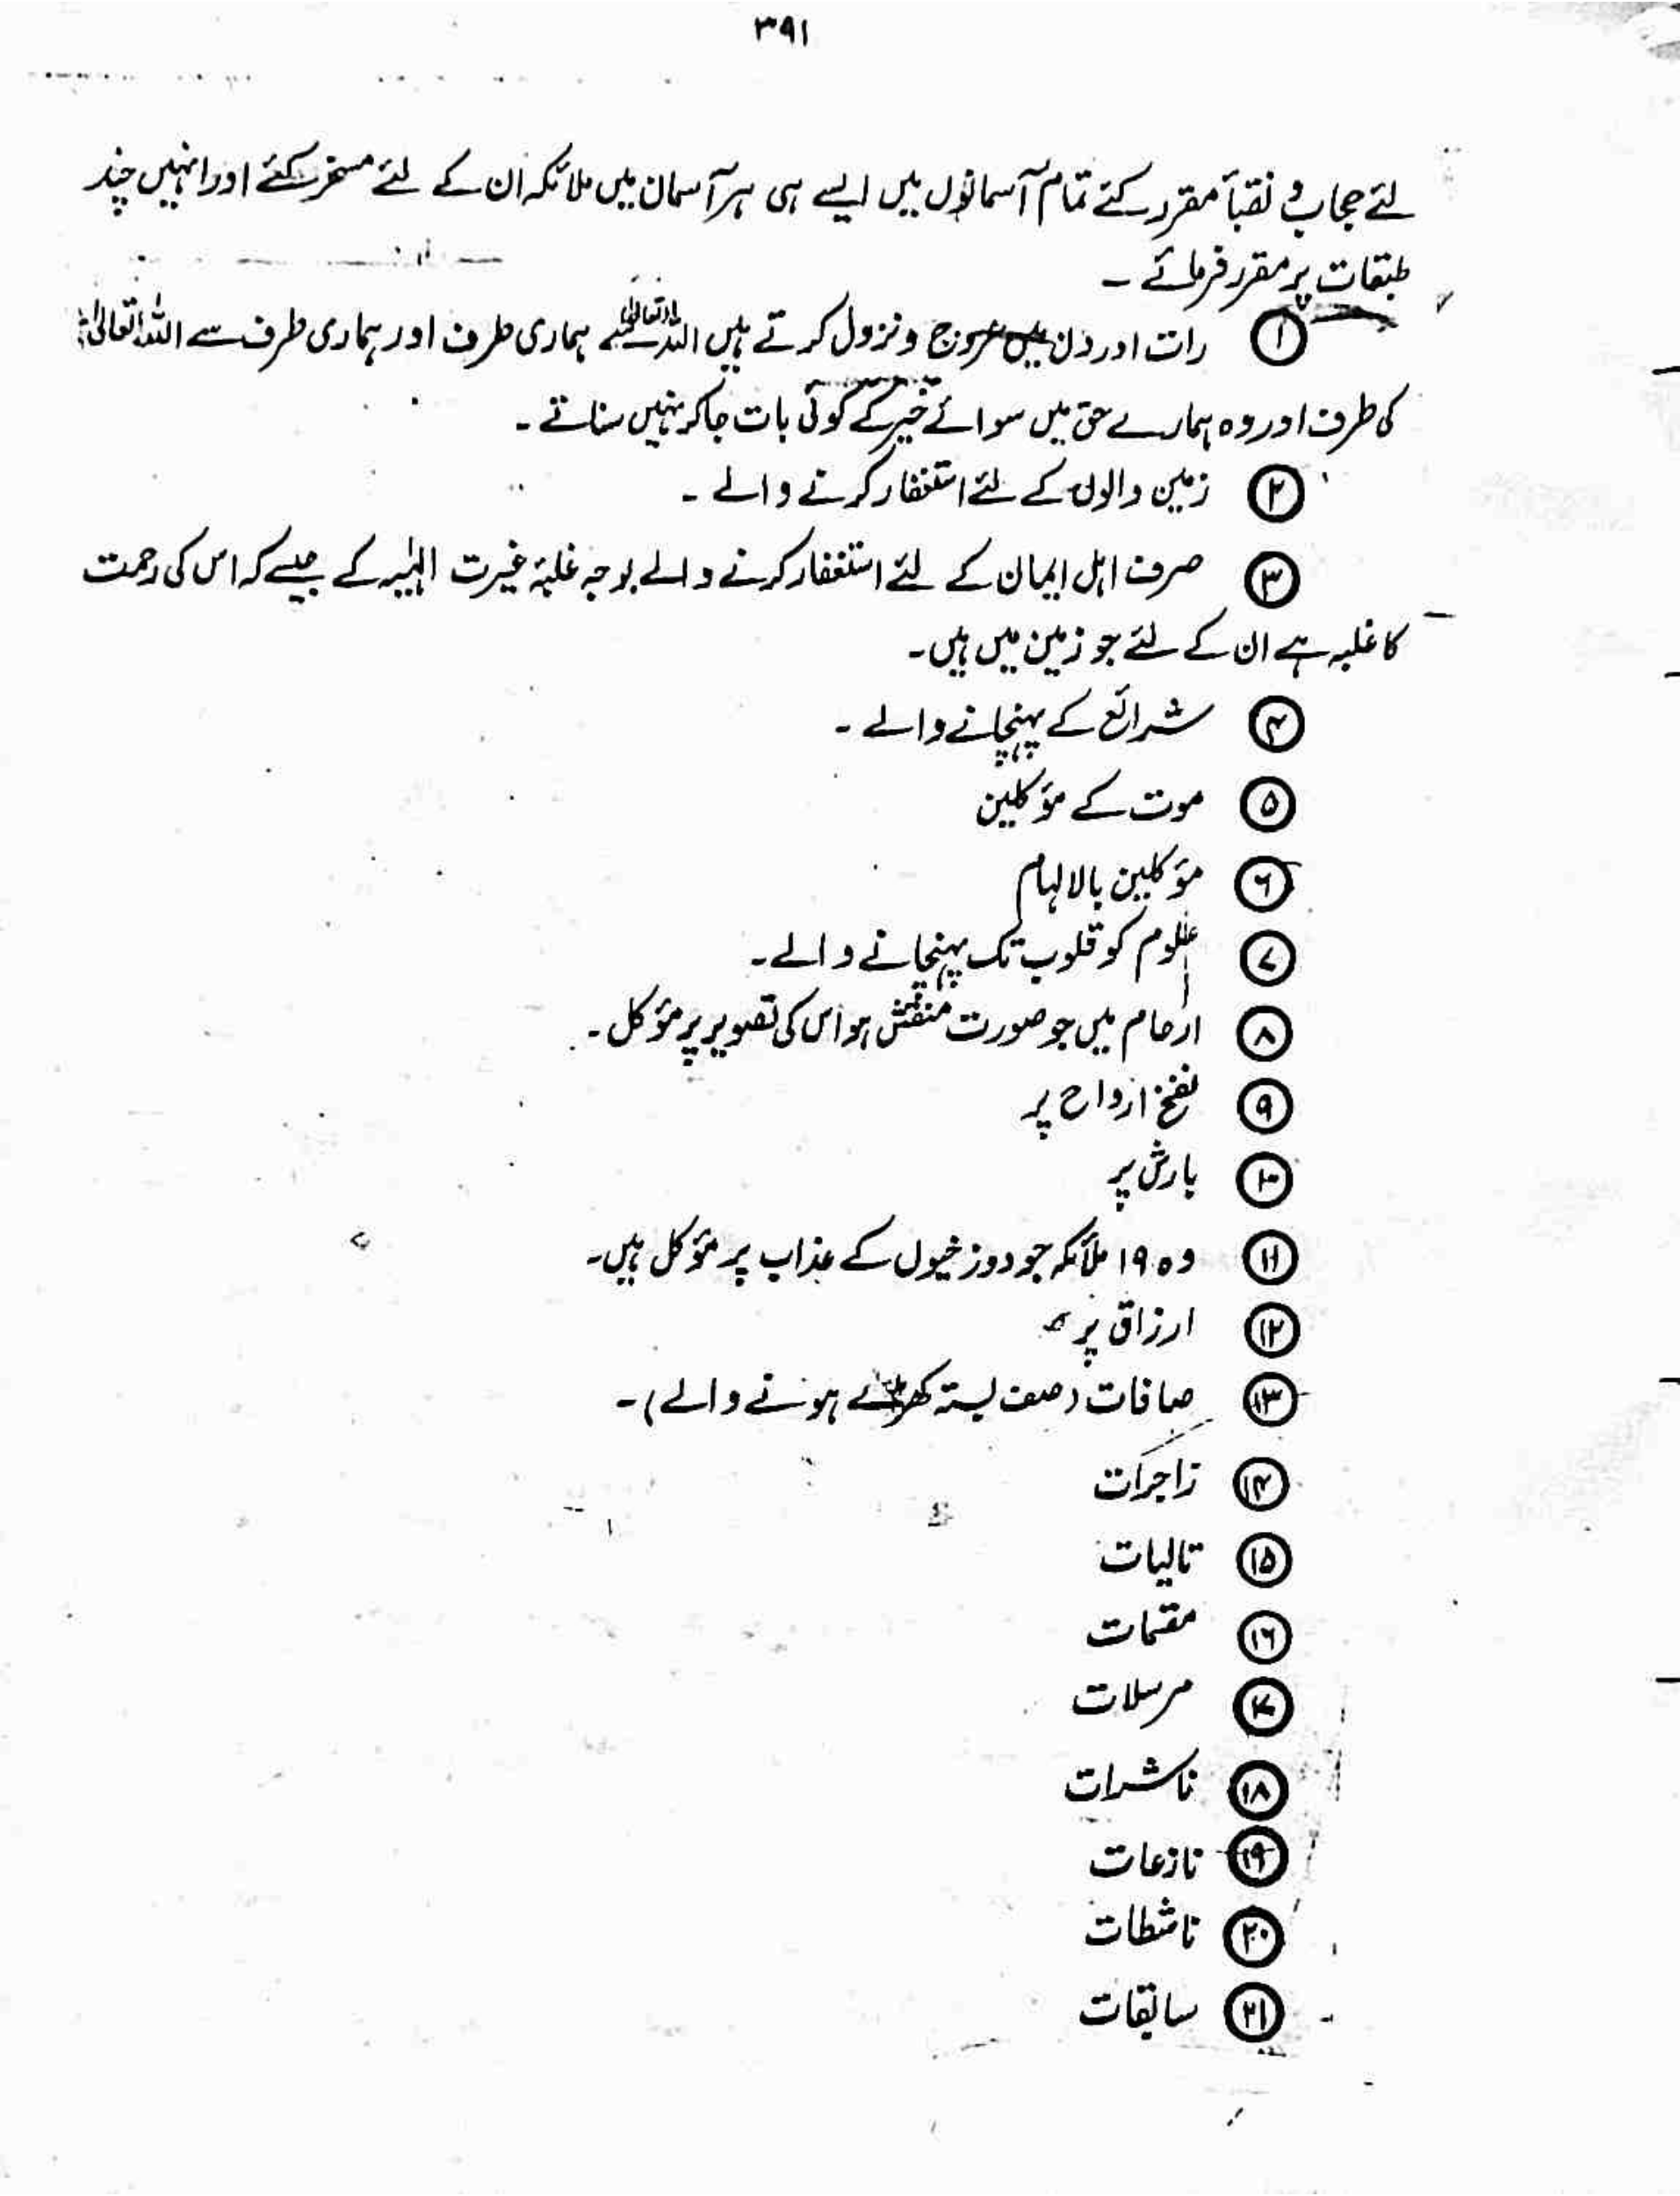 ۳۹۱
لئے حجاب و نقبأ مقرر کئے تمام آسمانوں میں ایسے ہی ہر آسمان میں ملائکہ ان کے لئے مسخر کئے اور انہیں چند
طبقات پر مقرر فرمائے ۔
۱ رات اور دن میں عروج و نزول کرتے ہیں اللہ تعالیٰ سے ہماری طرف اور ہماری طرف سے اللہ تعالیٰ
کی طرف اور وہ ہمارے حق میں سوائے خیر کے کوئی بات جا کر نہیں سناتے ۔
۲ زمین والوں کے لئے استغفار کرنے والے ۔
۳ صرف اہل ایمان کے لئے استغفار کرنے والے بوجہ غلبۂ غیرت الہٰیہ کے جیسے کہ اس کی رحمت
کا غلبہ ہے ان کے لئے جو زمین میں ہیں۔
۴ شرائع کے پہنچانے والے ۔
۵ موت کے مؤکلین
۶ مؤکلین بالالہام
۷ علوم کو قلوب تک پہنچانے والے۔
۸ ارحام میں جو صورت منقش ہو اس کی تصویر پر مؤکل ۔
۹ نفخ ارواح پر
۱۰ بارش پر
۱۱ وہ ۱۹ ملائکہ جو دوزخیوں کے عذاب پر مؤکل ہیں۔
۱۲ ارزاق پر
۱۳ صافات (صف بستہ کھڑے ہونے والے)۔
۱۴ زاجرات
۱۵ تالیات
۱۶ مقسمات
۱۷ مرسلات
۱۸ ناشرات
۱۹ نازعات
۲۰ ناشطات
۲۱ سابقات